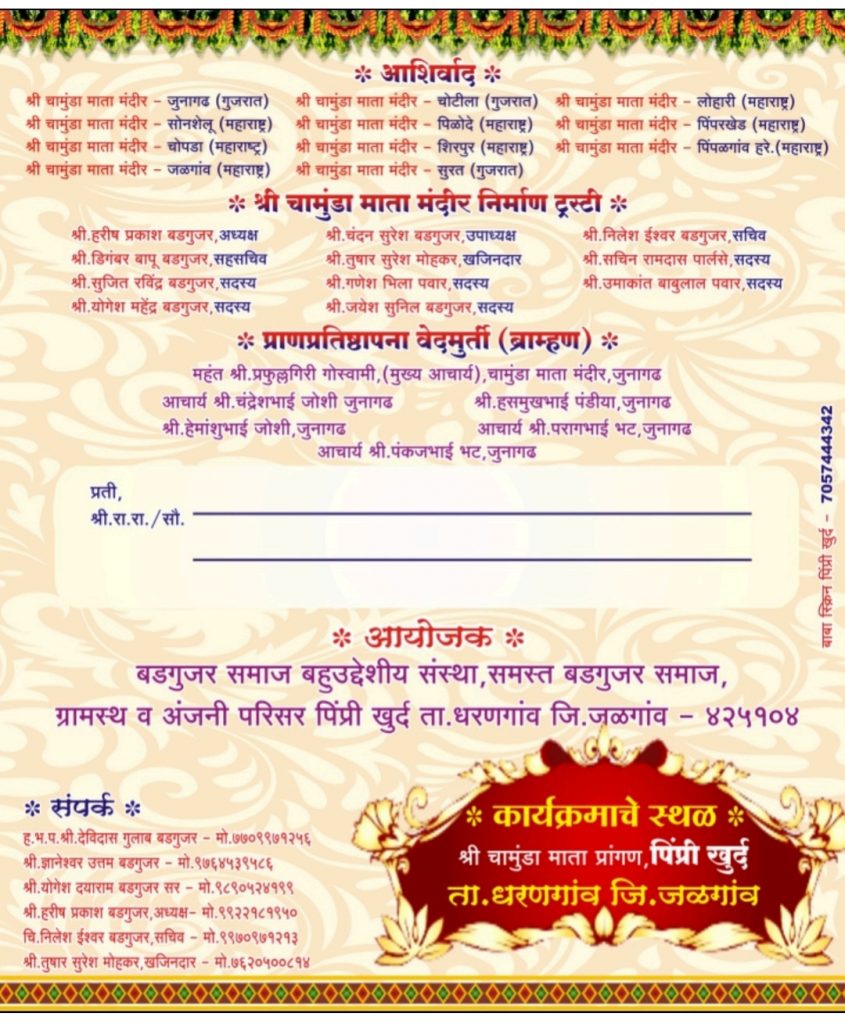 ❊ आशिर्वाद ❊
श्री चामुंडा माता मंदीर - जुनागढ (गुजरात) श्री चामुंडा माता मंदीर - चोटीला (गुजरात) श्री चामुंडा माता मंदीर - लोहारी (महाराष्ट्र)
श्री चामुंडा माता मंदीर - सोनशेलू (महाराष्ट्र) श्री चामुंडा माता मंदीर - पिळोदे (महाराष्ट्र) श्री चामुंडा माता मंदीर - पिंपरखेड (महाराष्ट्र)
श्री चामुंडा माता मंदीर - चोपडा (महाराष्ट्र) श्री चामुंडा माता मंदीर - शिरपुर (महाराष्ट्र) श्री चामुंडा माता मंदीर - पिंपळगांव हरे.(महाराष्ट्र)
श्री चामुंडा माता मंदीर - जळगांव (महाराष्ट्र) श्री चामुंडा माता मंदीर - सुरत (गुजरात)
❊ श्री चामुंडा माता मंदीर निर्माण ट्रस्टी ❊
श्री.हरीष प्रकाश बडगुजर,अध्यक्ष श्री.चंदन सुरेश बडगुजर,उपाध्यक्ष श्री.निलेश ईश्वर बडगुजर,सचिव
श्री.डिगंबर बापू बडगुजर,सहसचिव श्री.तुषार सुरेश मोहकर,खजिनदार श्री.सचिन रामदास पार्लसे,सदस्य
श्री.सुजित रविंद्र बडगुजर,सदस्य श्री.गणेश भिला पवार,सदस्य श्री.उमाकांत बाबुलाल पवार,सदस्य
श्री.योगेश महेंद्र बडगुजर,सदस्य श्री.जयेश सुनिल बडगुजर,सदस्य
❊ प्राणप्रतिष्ठापना वेदमुर्ती (ब्राम्हण) ❊
महंत श्री.प्रफुल्लगिरी गोस्वामी,(मुख्य आचार्य),चामुंडा माता मंदीर,जुनागढ
आचार्य श्री.चंद्रेशभाई जोशी जुनागढ श्री.हसमुखभाई पंडीया,जुनागढ
श्री.हेमांशुभाई जोशी,जुनागढ आचार्य श्री.परागभाई भट,जुनागढ
आचार्य श्री.पंकजभाई भट,जुनागढ
प्रती,
श्री.रा.रा./सौ.
बाबा स्क्रिन पिंप्री खुर्द - 7057444342
❊ आयोजक ❊
बडगुजर समाज बहुउद्देशीय संस्था,समस्त बडगुजर समाज,
ग्रामस्थ व अंजनी परिसर पिंप्री खुर्द ता.धरणगांव जि.जळगांव - ४२५१०४
❊ संपर्क ❊
ह.भ.प.श्री.देविदास गुलाब बडगुजर - मो.७७०९९७१२५६
श्री.ज्ञानेश्वर उत्तम बडगुजर - मो.९७६४५३९५८६
श्री.योगेश दयाराम बडगुजर सर - मो.९८९०५२४१९९
श्री.हरीष प्रकाश बडगुजर,अध्यक्ष- मो.९९२२१८१९५०
चि.निलेश ईश्वर बडगुजर,सचिव - मो.९९७०९७१२१३
श्री.तुषार सुरेश मोहकर,खजिनदार - मो.७६२०५००८१४
❊ कार्यक्रमाचे स्थळ ❊
श्री चामुंडा माता प्रांगण,पिंप्री खुर्द
ता.धरणगांव जि.जळगांव